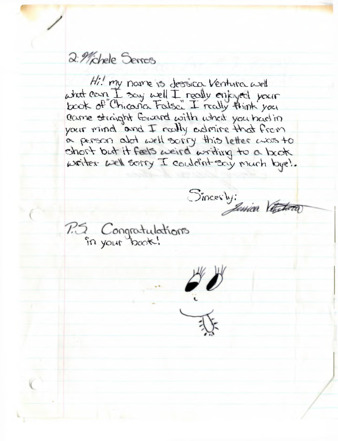 2 Michele Serros
Hi! my name is Jessica Ventura well
what can I say well I really enjoyed your
book of "Chicana Falsa" I really think you
came straight forward with what you had in
your mind and I really admire that from
a person alot well sorry this letter was to
short but it feels weird writing to a book
writer well sorry I couldn't say much bye!.
Sincerly:
Jessica Ventura
P.S. Congratulations
in your book!